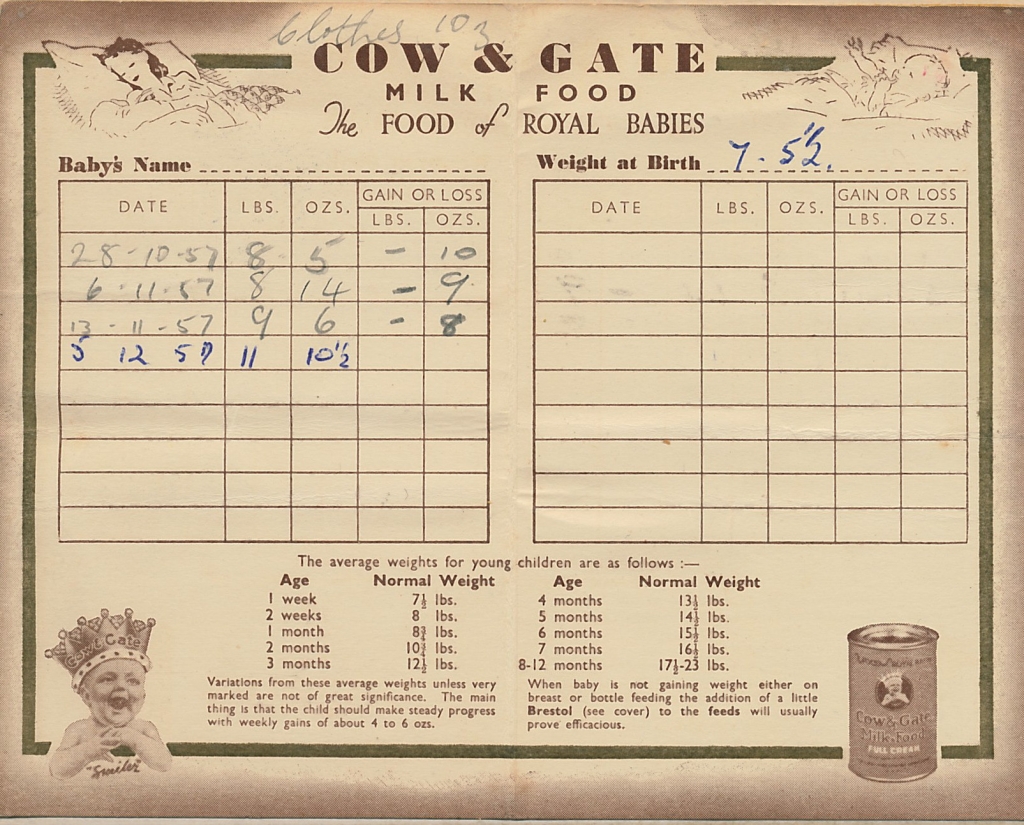 Clothes 10 oz
COW & GATE
MILK FOOD
The FOOD of ROYAL BABIES
Baby's Name
DATE LBS. OZS. GAIN OR LOSS
LBS. OZS.
28-10-57 8 5 - 10
6-11-57 8 14 - 9
13-11-57 9 6 - 8
5 12 57 11 10½
Weight at Birth 7-5½.
DATE LBS. OZS. GAIN OR LOSS
LBS. OZS.
The average weights for young children are as follows :—
Age Normal Weight
1 week 7½ lbs.
2 weeks 8 lbs.
1 month 8¾ lbs.
2 months 10¾ lbs.
3 months 12½ lbs.
Age Normal Weight
4 months 13½ lbs.
5 months 14½ lbs.
6 months 15½ lbs.
7 months 16½ lbs.
8-12 months 17½-23 lbs.
Variations from these average weights unless very
marked are not of great significance. The main
thing is that the child should make steady progress
with weekly gains of about 4 to 6 ozs.
When baby is not gaining weight either on
breast or bottle feeding the addition of a little
Brestol (see cover) to the feeds will usually
prove efficacious.
Cow & Gate
"Smiler"
Cow & Gate
Milk Food
FULL CREAM